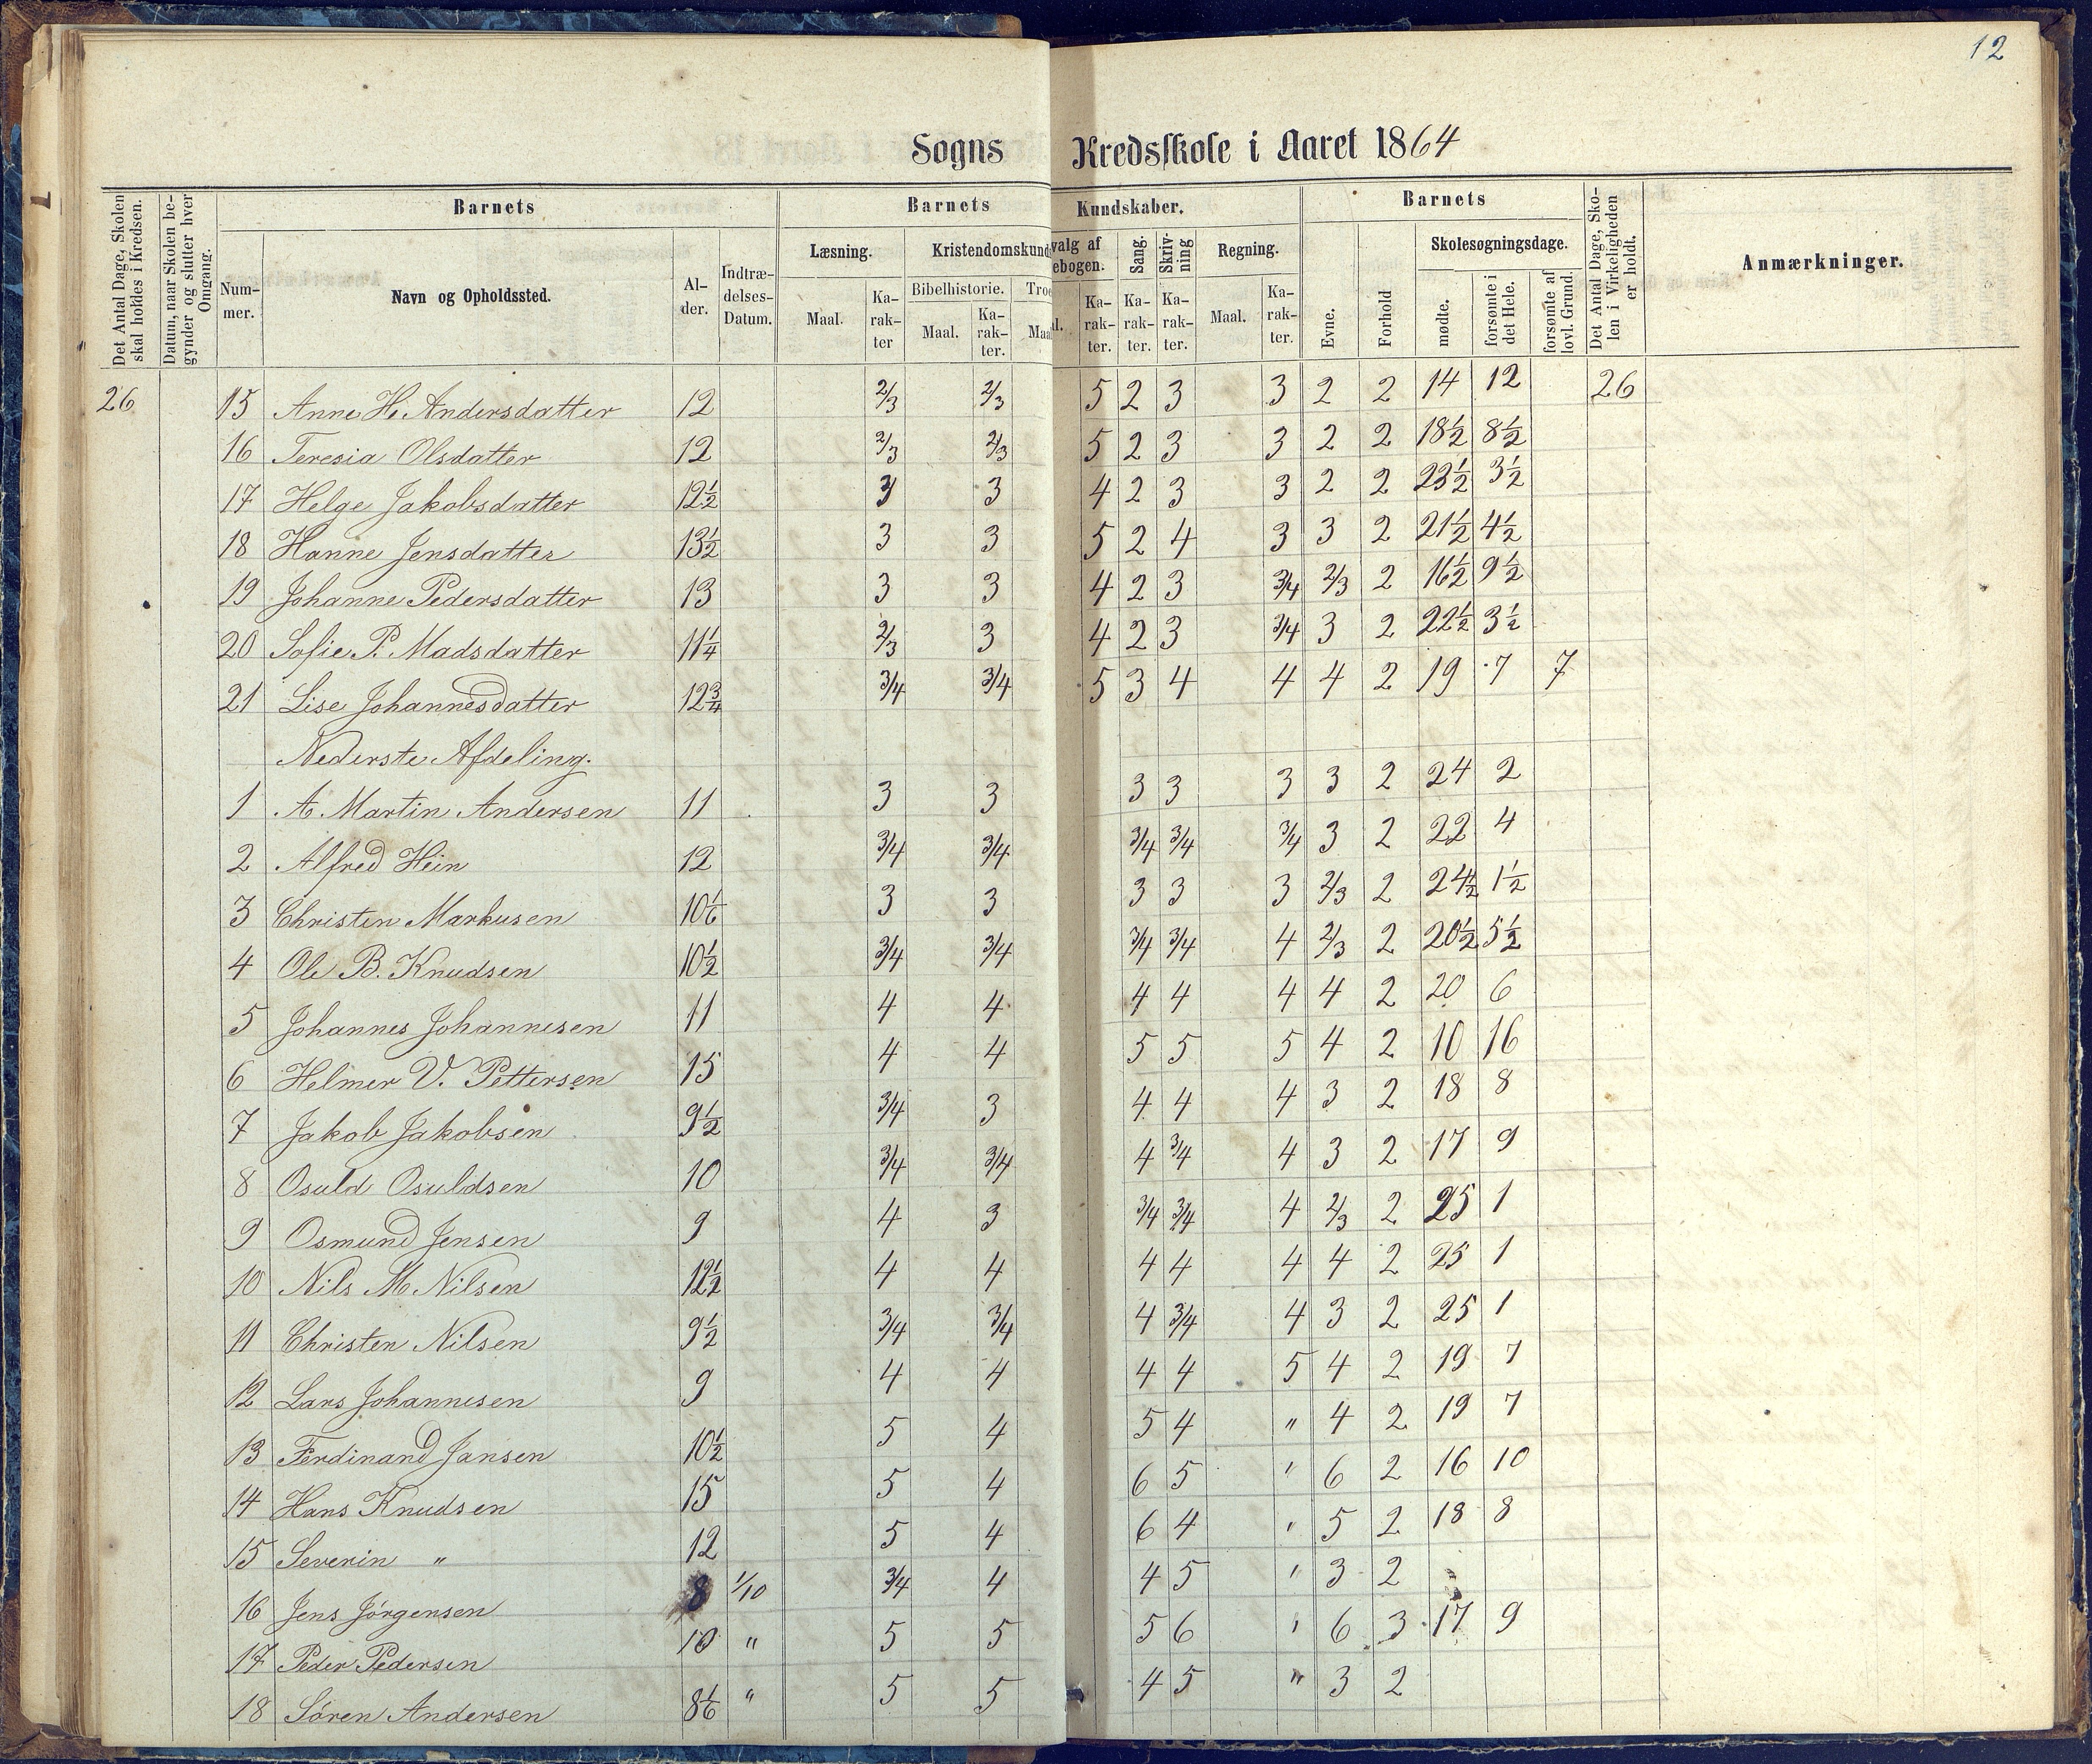 12
Sogns Kredsskole i Aaret 1864
Det Antal Dage, Skolen skal holdes i Kredsen.
Datum, naar Skolen begynder og slutter hver Omgang.
Barnets
Nummer.
Navn og Opholdssted.
Alder.
Indtrædelses-Datum.
Barnets Kundskaber.
Læsning.
Maal.
Karakter
Kristendomskund
Bibelhistorie.
Maal.
Karakter.
Troe
Maal
valg af
ebogen.
l.
Karakter.
Sang.
Karakter.
Skrivning
Karakter.
Regning.
Maal.
Karakter.
Barnets
Evne.
Forhold
Skolesøgningsdage.
mødte.
forsømte i det Hele.
forsømte af lovl. Grund.
Det Antal Dage, Skolen i Virkeligheden er holdt.
Anmærkninger.
26 15 Anne H. Andersdatter 12 2/3 2/3 5 2 3 3 2 2 14 12 26
16 Teresia Olsdatter 12 2/3 2/3 5 2 3 3 2 2 18½ 8½
17 Helge Jakobsdatter 12½ 3 3 4 2 3 3 2 2 23½ 3½
18 Hanne Jensdatter 13½ 3 3 5 2 4 3 3 2 21½ 4½
19 Johanne Pedersdatter 13 3 3 4 2 3 3/4 2/3 2 16½ 9½
20 Sofie P. Madsdatter 11¼ 2/3 3 4 2 3 3/4 3 2 22½ 3½
21 Lise Johannesdatter 12¾ 3/4 3/4 5 3 4 4 4 2 19 7 7
Nederste Afdeling.
1 A. Martin Andersen 11 3 3 3 3 3 3 2 24 2
2 Alfred Hein 12 3/4 3/4 3/4 3/4 3/4 3 2 22 4
3 Christen Markusen 10 1/6 3 3 3 3 3 2/3 2 24½ 1½
4 Ole B. Knudsen 10½ 3/4 3/4 3/4 3/4 4 2/3 2 20½ 5½
5 Johannes Johannesen 11 4 4 4 4 4 4 2 20 6
6 Helmer V. Pettersen 15 4 4 5 5 5 4 2 10 16
7 Jakob Jakobsen 9½ 3/4 3 4 4 4 3 2 18 8
8 Osuld Osuldsen 10 3/4 3/4 4 3/4 4 3 2 17 9
9 Osmund Jensen 9 4 3 3/4 3/4 4 2/3 2 25 1
10 Nils M. Nilsen 12½ 4 4 4 4 4 4 2 25 1
11 Christen Nilsen 9½ 3/4 3/4 4 3/4 4 3 2 25 1
12 Lars Johannesen 9 4 4 4 4 5 4 2 19 7
13 Ferdinand Jansen 10½ 5 4 5 4 " 4 2 19 7
14 Hans Knudsen 15 5 4 6 5 " 6 2 16 10
15 Severin " 12 5 4 6 4 " 5 2 18 8
16 Jens Jörgensen 8 1/10 3/4 4 4 5 " 3 2
17 Peder Pedersen 10 " 5 5 5 6 " 6 3 17 9
18 Sören Andersen 8 1/6 " 5 5 4 5 " 3 2